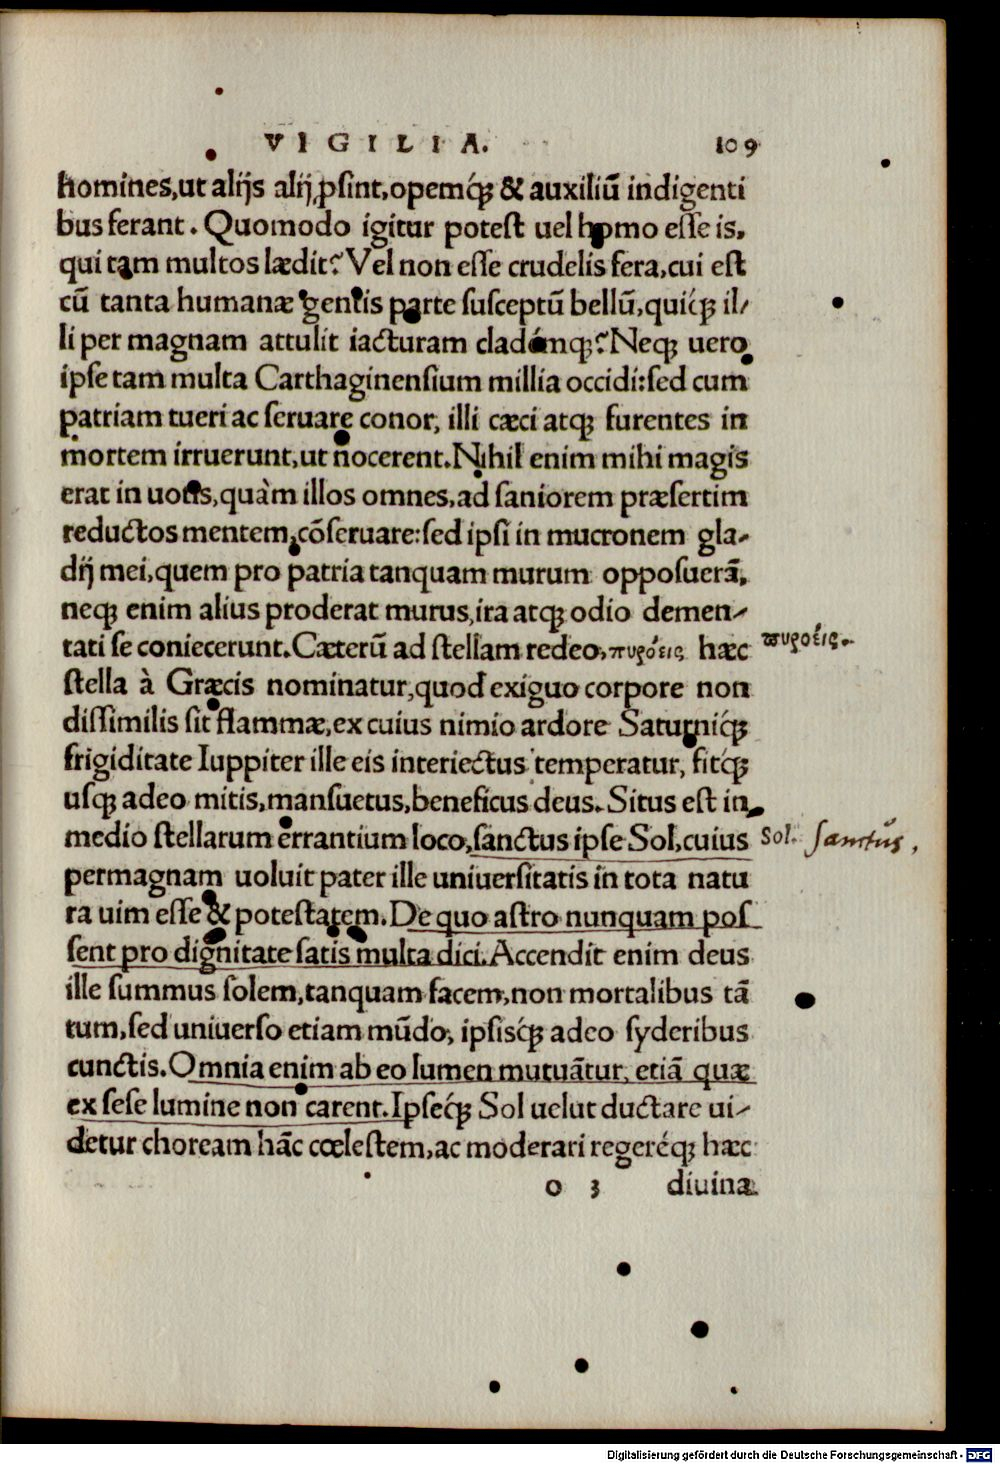 VIGILIA. 109
homines, ut alijs alij ꝓsint, opemq́ꝫ & auxiliũ indigenti
bus ferant. Quomodo igitur potest uel homo esse is,
qui tam multos lædit? Vel non esse crudelis fera, cui est
cũ tanta humanæ gentis parte susceptũ bellũ, quiq́ꝫ il/
li per magnam attulit iacturam cladémqꝫ? Neqꝫ uero
ipse tam multa Carthaginensium millia occidi: sed cum
patriam tueri ac seruare conor, illi cæci atqꝫ furentes in
mortem irruerunt, ut nocerent. Nihil enim mihi magis
erat in uotis, quàm illos omnes, ad saniorem præsertim
reductos mentem, cõseruare: sed ipsi in mucronem gla-
dij mei, quem pro patria tanquam murum opposuerã,
neqꝫ enim alius proderat murus, ira atqꝫ odio demen-
tati se coniecerunt. Cæterũ ad stellam redeo, πυρόεις hæc
πυρόεις.
stella à Græcis nominatur, quod exiguo corpore non
dissimilis sit flammæ, ex cuius nimio ardore Saturniq́ꝫ
frigiditate Iuppiter ille eis interiectus temperatur, fitq́ꝫ
usqꝫ adeo mitis, mansuetus, beneficus deus. Situs est in
medio stellarum errantium loco, sanctus ipse Sol, cuius
Sol. Sanctus,
permagnam uoluit pater ille uniuersitatis in tota natu
ra uim esse & potestatem. De quo astro nunquam pos
sent pro dignitate satis multa dici. Accendit enim deus
ille summus solem, tanquam facem, non mortalibus tã
tum, sed uniuerso etiam mũdo, ipsisq́ꝫ adeo syderibus
cunctis. Omnia enim ab eo lumen mutuãtur, etiã quæ
ex sese lumine non carent. Ipseq́ꝫ Sol uelut ductare ui-
detur choream hãc cœlestem, ac moderari regeréqꝫ hæc
o 3 diuina
Digitalisierung gefördert durch die Deutsche Forschungsgemeinschaft - DFG